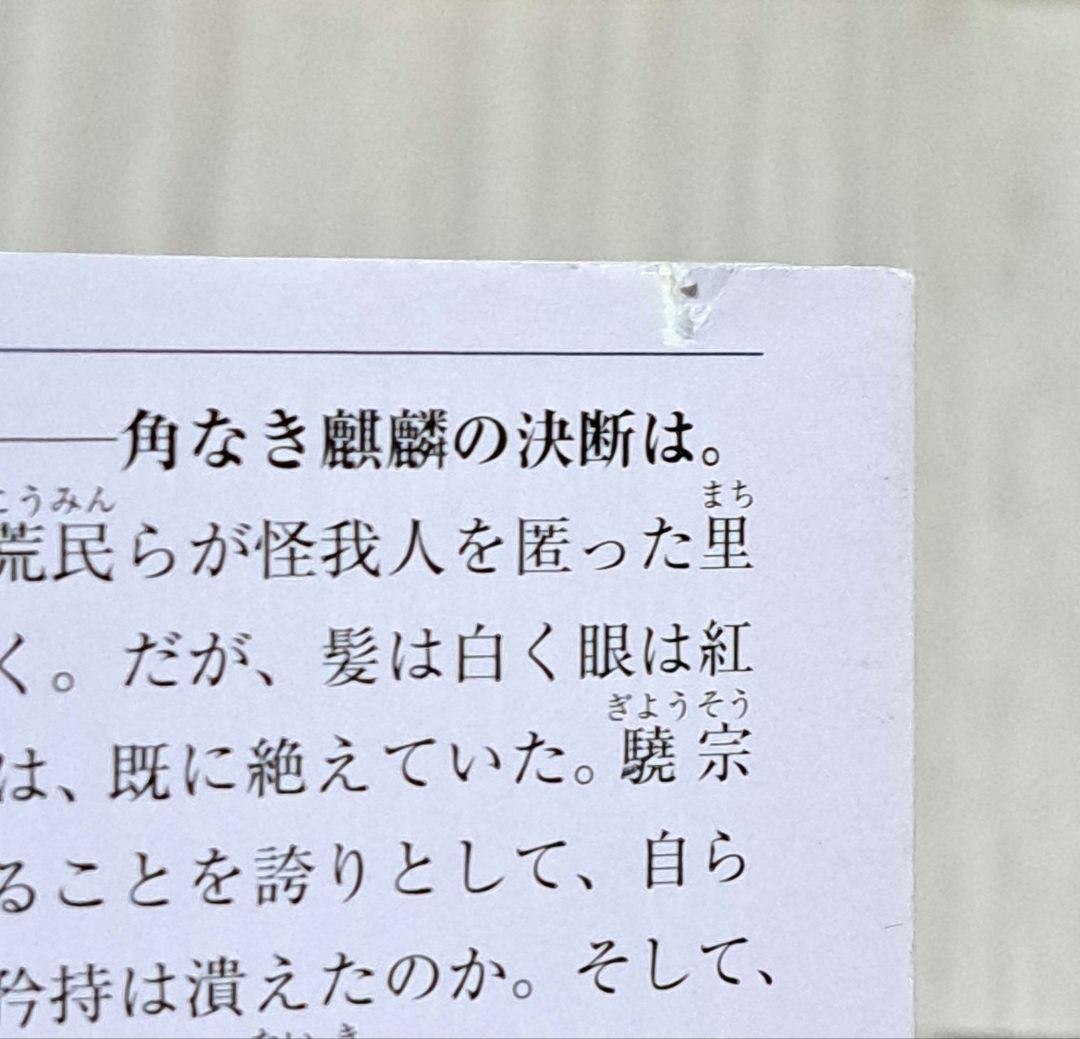 ――角なき麒麟の決断は。
こうみん
まち
荒民らが怪我人を匿った里
く。だが、髪は白く眼は紅
ぎようそう
は、既に絶えていた。驍宗
ることを誇りとして、自ら
矜持は潰えたのか。そして、